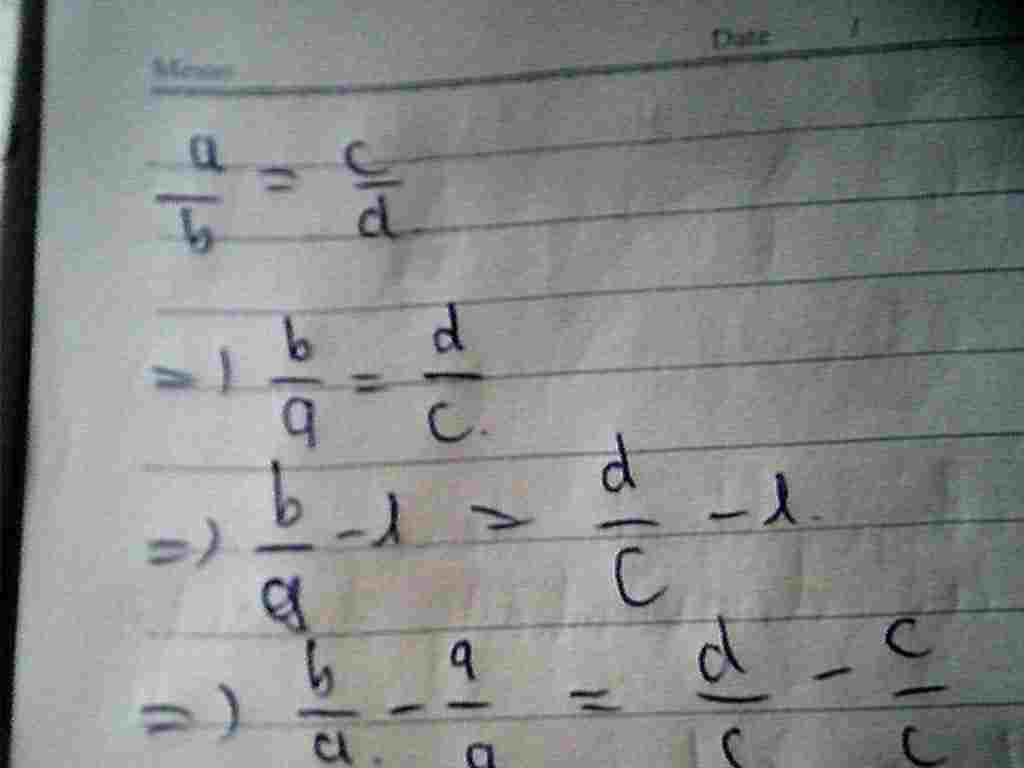 Memo Date / /
a/b = c/d
=> b/a = d/c.
=> b/a - 1 = d/c - 1.
=> b/a - a/a = d/c - c/c